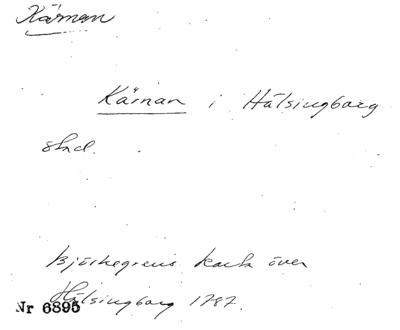 Kärnan
Kärnan i Hälsingborg
stad.
Björkegrens karta över
Hälsingborg 1787.
Nr 6895